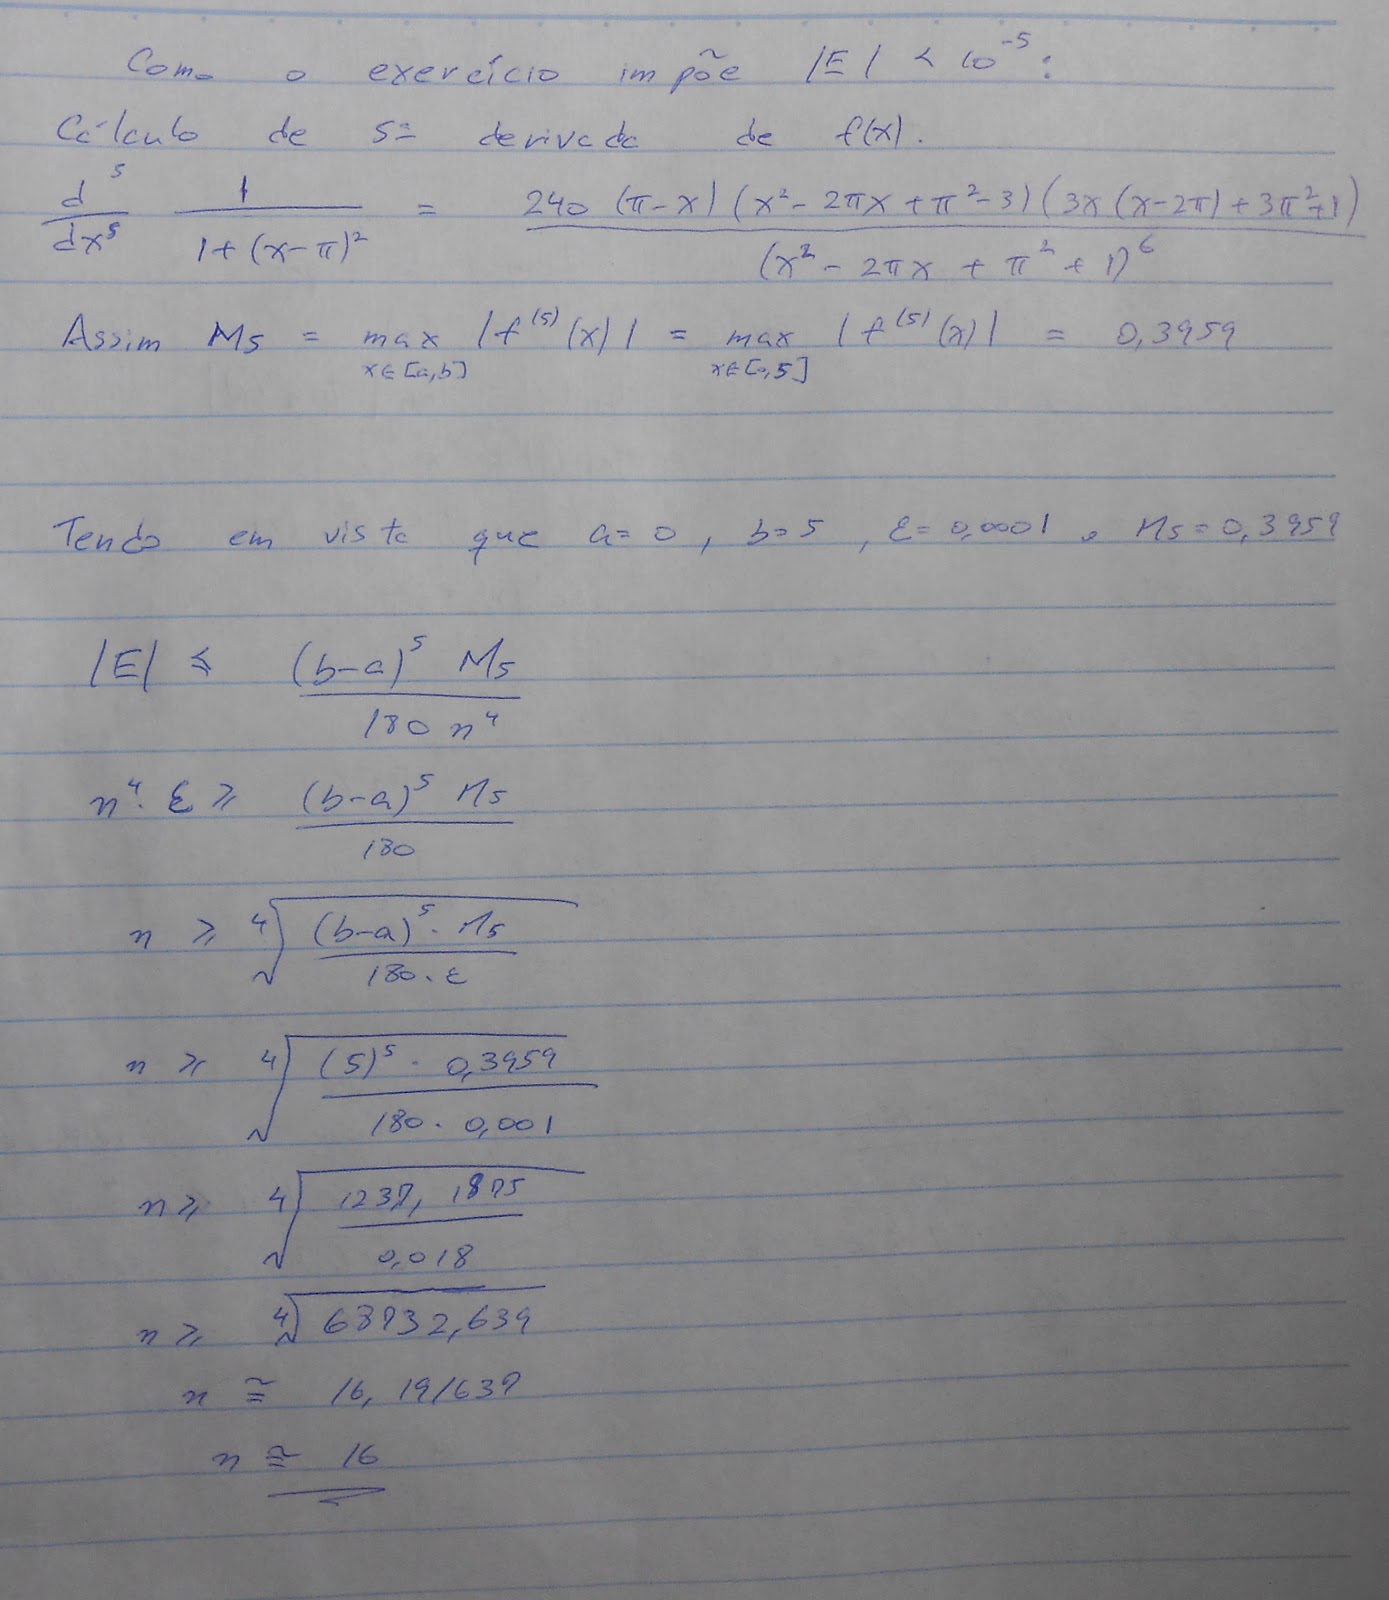 Como o exercício impõe |E| < 10^-5:
Cálculo de 5ª derivada de f(x).
d^5/dx^5 1/(1+(x-π)^2) = 240 (π-x) (x^2-2πx+π^2-3) (3x(x-2π)+3π^2+1) / (x^2-2πx+π^2+1)^6
Assim M5 = max x∈[a,b] |f^(5)(x)| = max x∈[0,5] |f^(5)(x)| = 0,3959
Tendo em vista que a=0, b=5, ε=0,0001 e M5=0,3959
|E| ≤ (b-a)^5 M5 / 180 n^4
n^4 · ε ≥ (b-a)^5 M5 / 180
n ≥ ⁴√((b-a)^5 · M5 / 180 · ε)
n ≥ ⁴√((5)^5 · 0,3959 / 180 · 0,001)
n ≥ ⁴√(1237,1875 / 0,018)
n ≥ ⁴√68732,639
n ≅ 16,191637
n ≅ 16